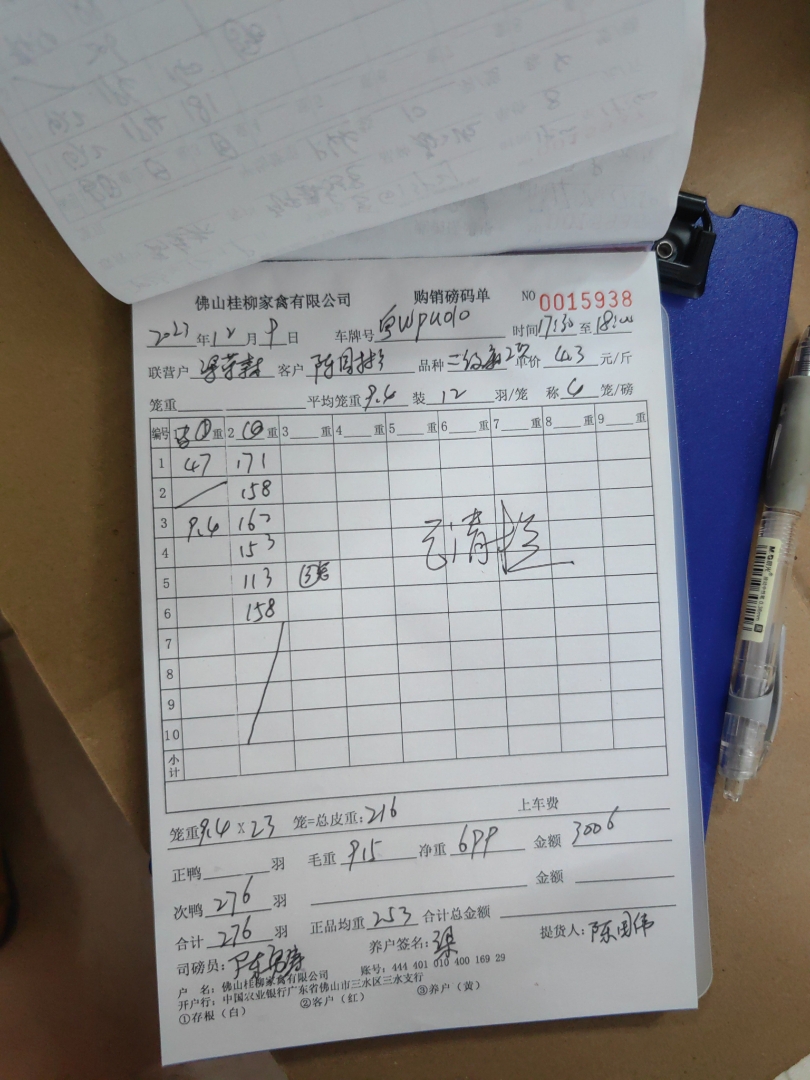 佛山桂柳家禽有限公司 购销磅码单 NO 0015938
2023年12月9日 车牌号 时间17:30至18:00
联营户 客户 陈国 品种 单价 4.3 元/斤
笼重 平均笼重 9.4 装 12 羽/笼 称 4 笼/磅
编号 ⑤重 2 ④重 3 重 4 重 5 重 6 重 7 重 8 重 9 重
1 47 171
2 158
3 9.4 162
4 153
5 113 ③笼
6 158
7
8
9
10
小计
笼重 9.4 X 23 笼=总皮重: 216 上车费
正鸭 羽 毛重 915 净重 699 金额 3006
次鸭 276 羽 金额
合计 276 羽 正品均重 2.53 合计总金额
司磅员: 养户签名: 梁 提货人: 陈国伟
户 名: 佛山桂柳家禽有限公司 账号: 444 401 010 400 169 29
开户行: 中国农业银行广东省佛山市三水区三水支行
①存根(白) ②客户(红) ③养户(黄)